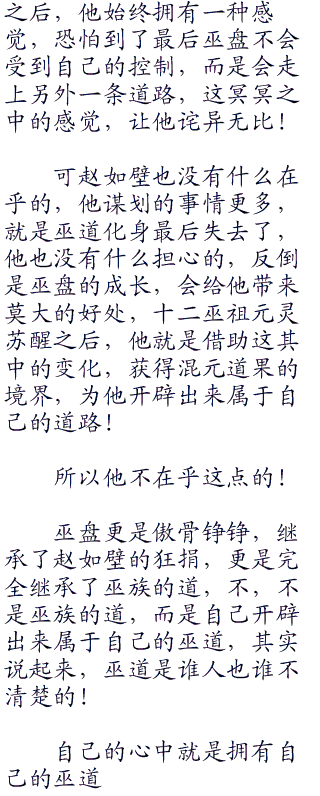 之后，他始终拥有一种感
觉，恐怕到了最后巫盘不会
受到自己的控制，而是会走
上另外一条道路，这冥冥之
中的感觉，让他诧异无比！
可赵如壁也没有什么在
乎的，他谋划的事情更多，
就是巫道化身最后失去了，
他也没有什么担心的，反倒
是巫盘的成长，会给他带来
莫大的好处，十二巫祖元灵
苏醒之后，他就是借助这其
中的变化，获得混元道果的
境界，为他开辟出来属于自
己的道路！
所以他不在乎这点的！
巫盘更是傲骨铮铮，继
承了赵如壁的狂捐，更是完
全继承了巫族的道，不，不
是巫族的道，而是自己开辟
出来属于自己的巫道，其实
说起来，巫道是谁人也谁不
清楚的！
自己的心中就是拥有自
己的巫道